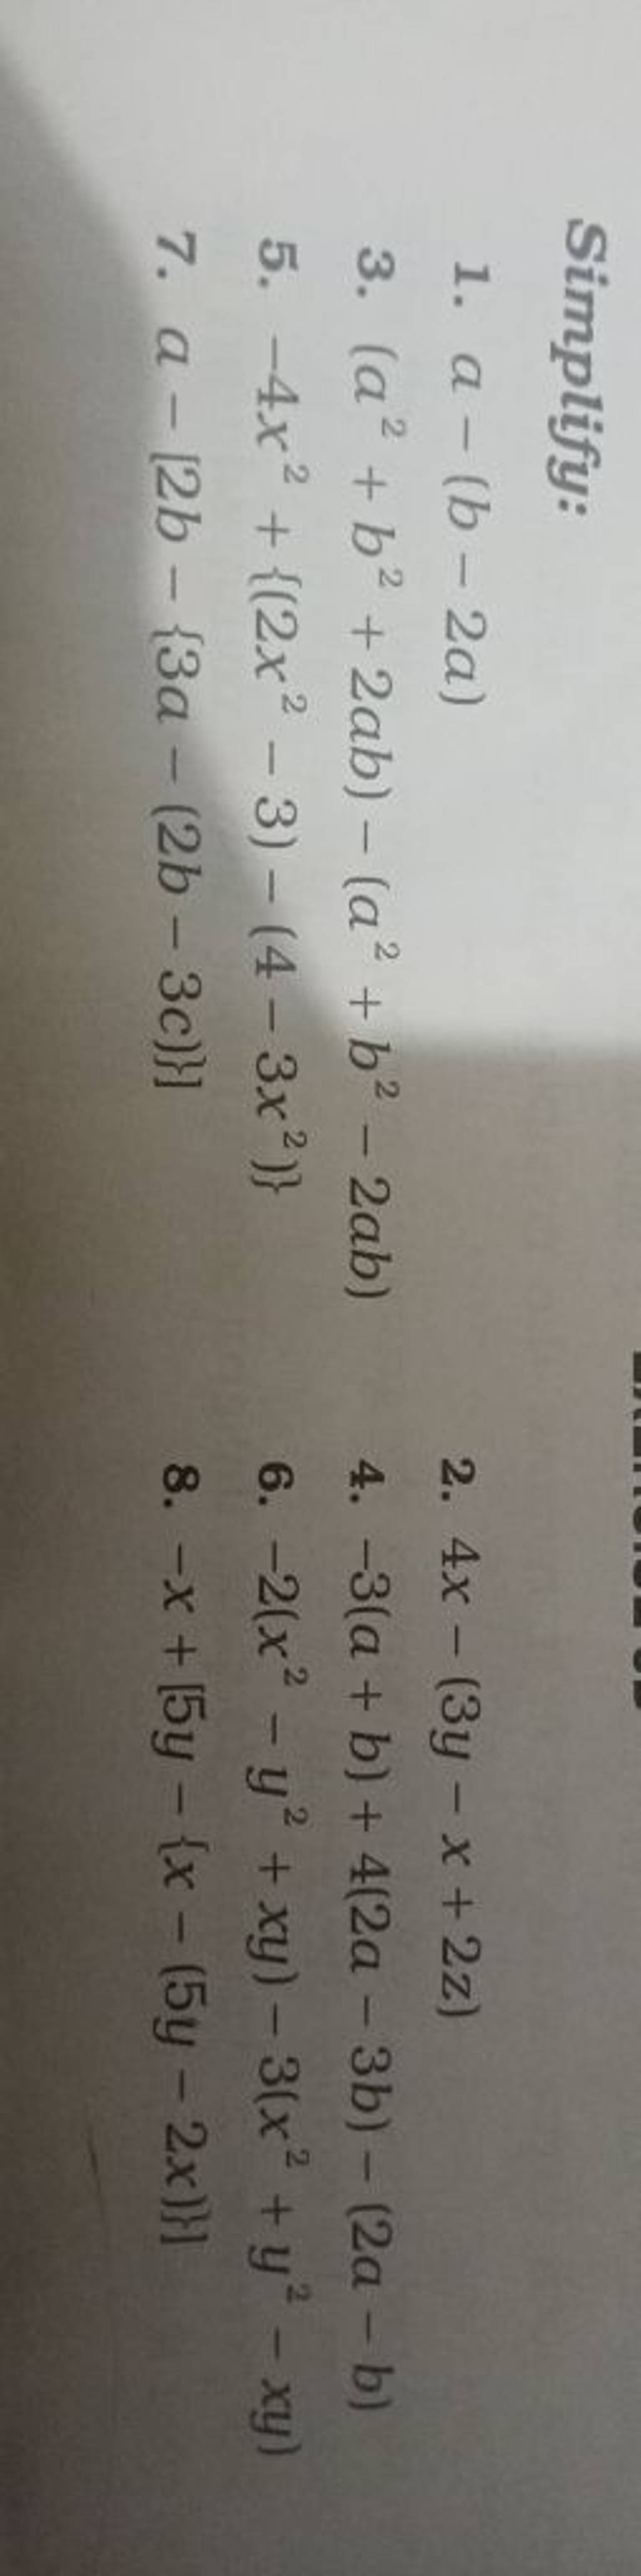 Simplify:
1. a – (b – 2a)
2. 4x – (3y – x + 2z)
3. (a² + b² + 2ab) – (a² + b² – 2ab)
4. –3(a + b) + 4(2a – 3b) – (2a – b)
5. –4x² + {(2x² – 3) – (4 – 3x²)}
6. –2(x² – y² + xy) – 3(x² + y² – xy)
7. a – [2b – {3a – (2b – 3c)}]
8. –x + [5y – {x – (5y – 2x)}]